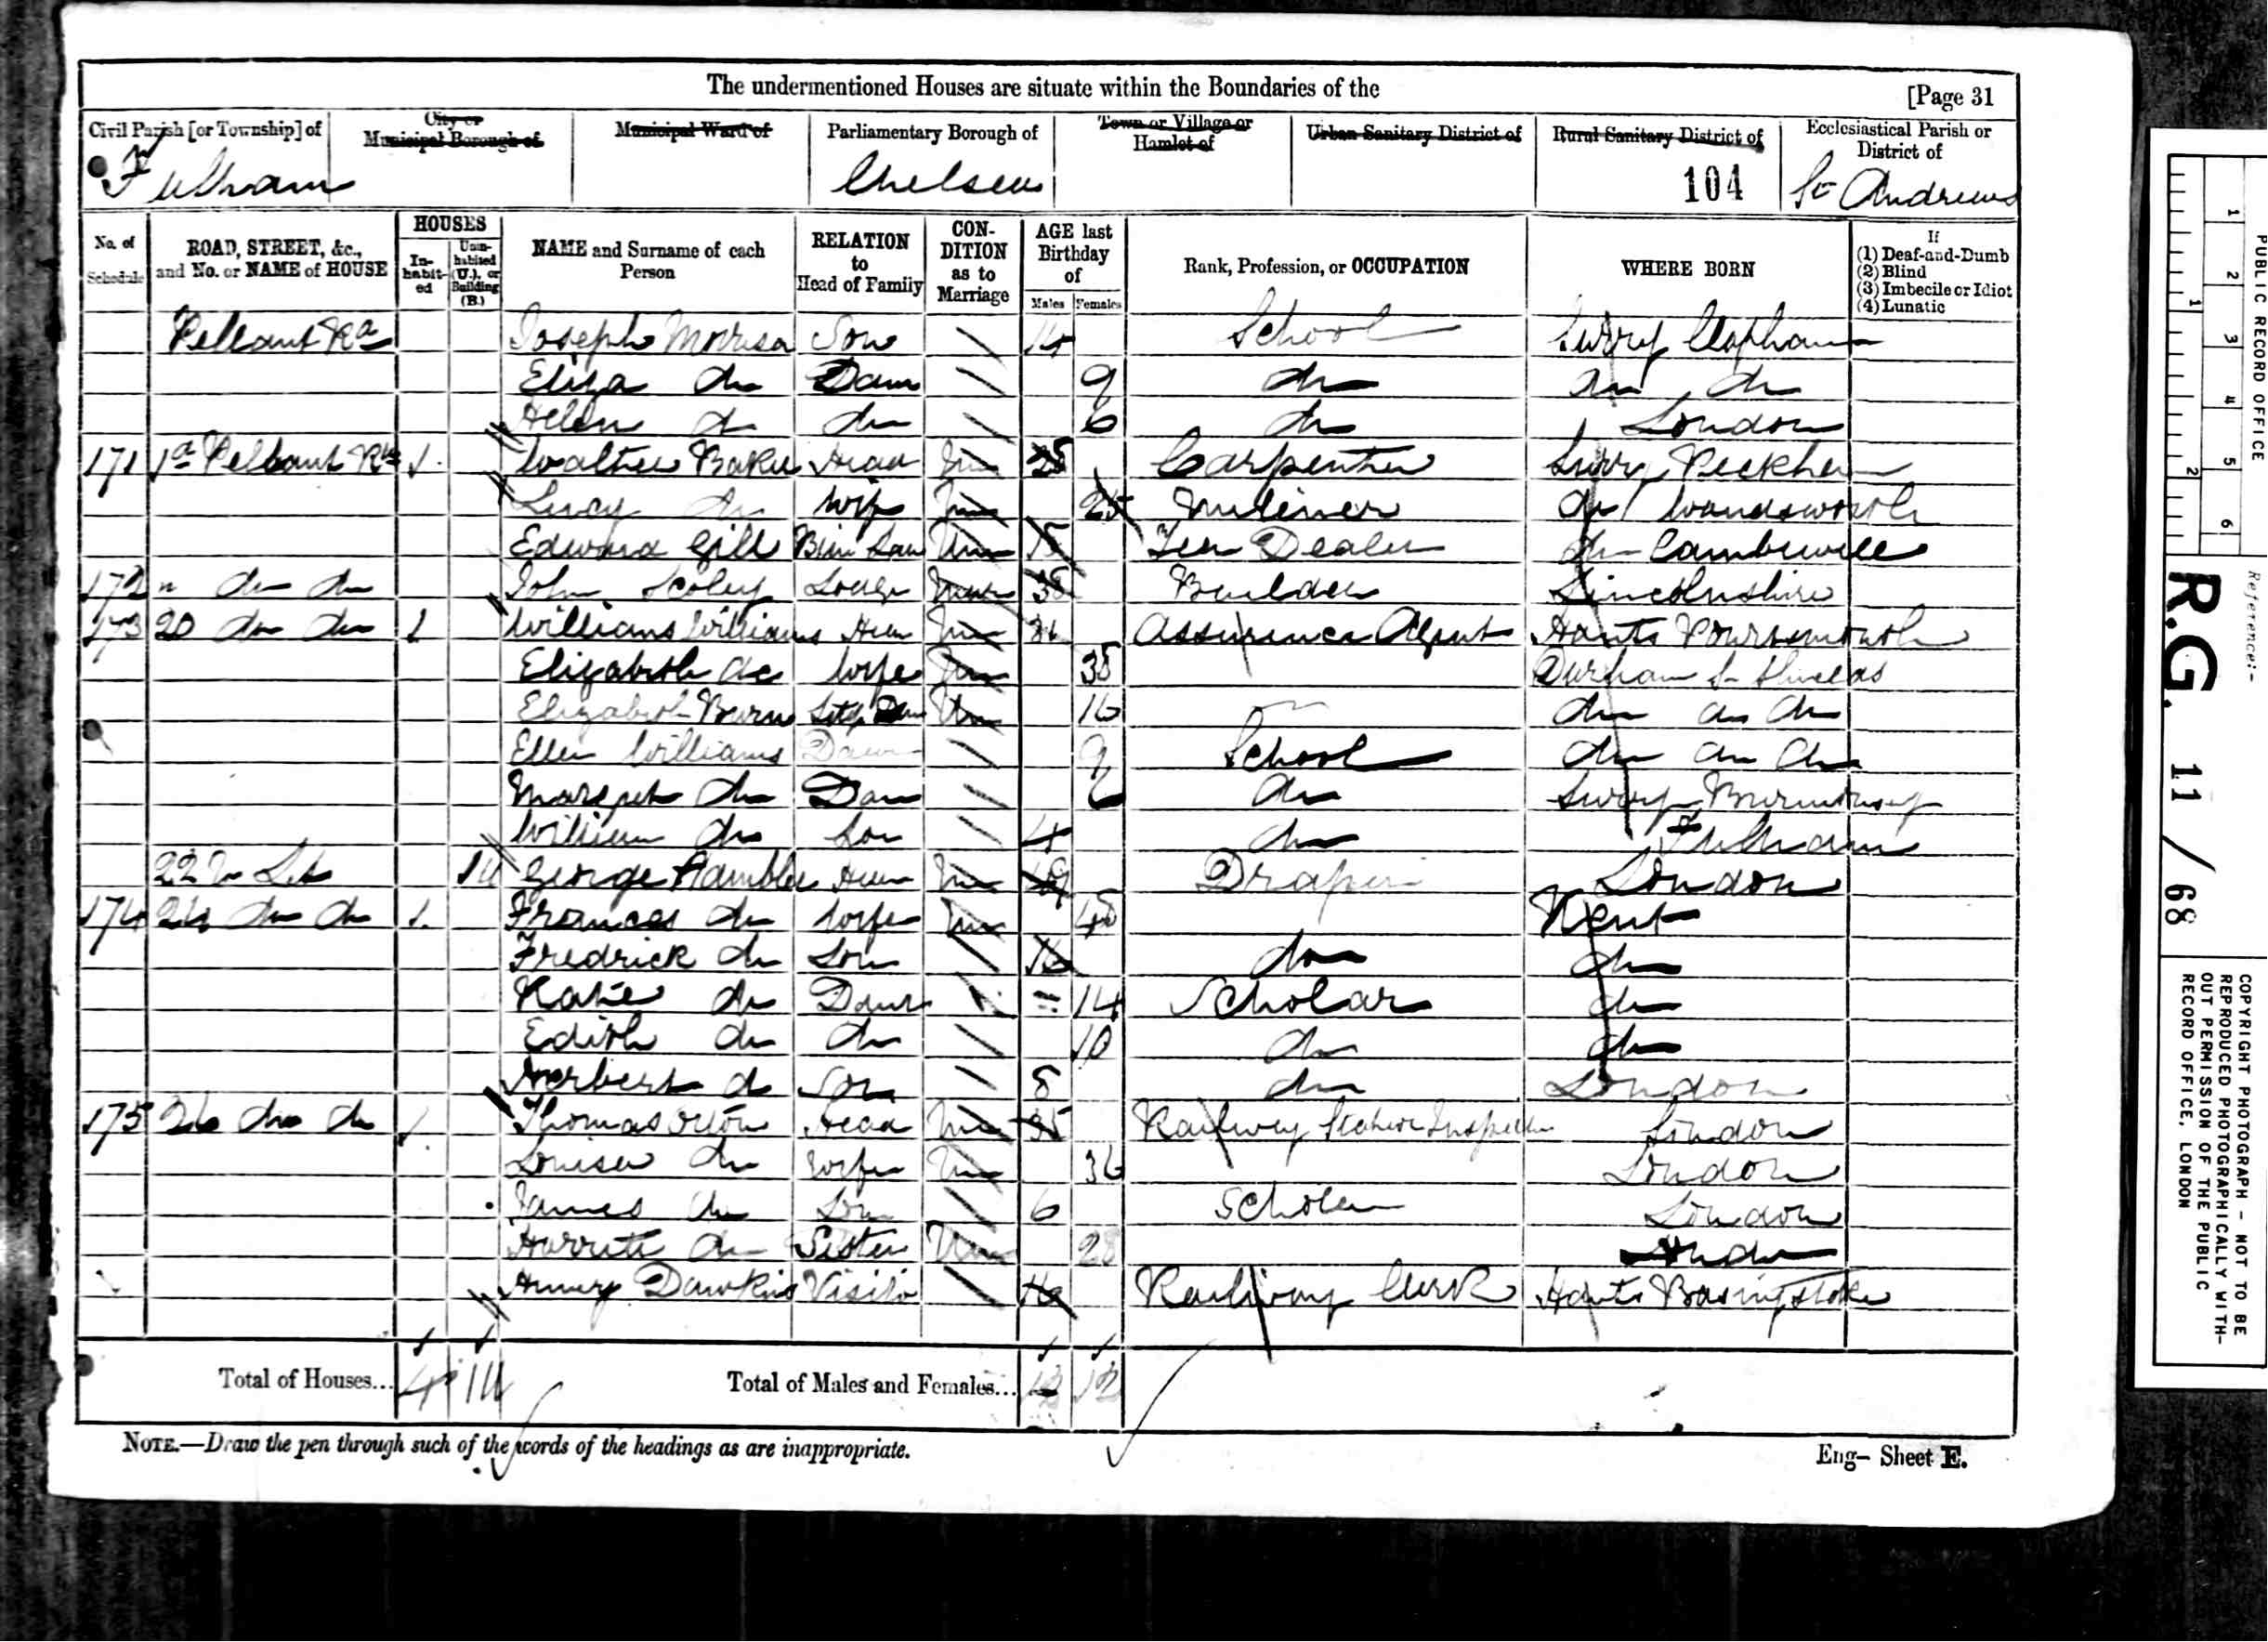 The undermentioned Houses are situate within the Boundaries of the
[Page 31
Civil Parish [or Township] of
City or Municipal Borough of
Municipal Ward of
Parliamentary Borough of
Town or Village or Hamlet of
Urban Sanitary District of
Rural Sanitary District of
Ecclesiastical Parish or District of
Fulham Chelsea 104 St Andrews
No. of Schedule
ROAD, STREET, &c., and No. or NAME of HOUSE
HOUSES
Inhabited
Uninhabited (U.), or Building (B.)
NAME and Surname of each Person
RELATION to Head of Family
CONDITION as to Marriage
AGE last Birthday of
Males Females
Rank, Profession, or OCCUPATION
WHERE BORN
If
(1) Deaf-and-Dumb
(2) Blind
(3) Imbecile or Idiot
(4) Lunatic
Pellant Rd Joseph Son School Surry Clapham
Eliza do Daur 9 do do do
Helen do do 6 do London
171 1a Pellant Rd 1 Walter Baker Head Mar 25 Carpenter Surry Peckham
Lucy do Wife Mar 25 Miliner do Wandsworth
Edward Gill Unm Dealer do Camberwell
172 do do John Scoley 38 Builder Lincolnshire
173 20 do do 1 Williams Williams Mar Assurance Agent Hants Portsmouth
Elizabeth do Wife Mar 35 Durham S Shields
Elizabeth Burn Unm 16 do do do
Ellen Williams Daur 9 School do do do
Margret do Daur 6 do Surry
William do Son 4 do Fulham
22 1U George Mar Draper London
174 24 do do 1 Frances do Wife Mar Kent
Fredrick do Son 16 do do
Katie do Daur 14 Scholar do
Edith do do 10 do do
Herbert do Son 8 do London
175 26 do do 1 Thomas Orton Head Mar 35 Railway London
Louisa do Wife Mar 36 London
James do Son 6 Scholar London
do Sister Unm 28
Dawkins 16 Railway Clerk Hants Basingstoke
Total of Houses... 4 1U
Total of Males and Females... 12 12
NOTE.—Draw the pen through such of the words of the headings as are inappropriate.
Eng— Sheet E.
PUBLIC RECORD OFFICE
1 2 3 4 5 6
1 2
Reference:-
R.G. 11 / 68
COPYRIGHT PHOTOGRAPH - NOT TO BE
REPRODUCED PHOTOGRAPHICALLY WITH-
OUT PERMISSION OF THE PUBLIC
RECORD OFFICE, LONDON